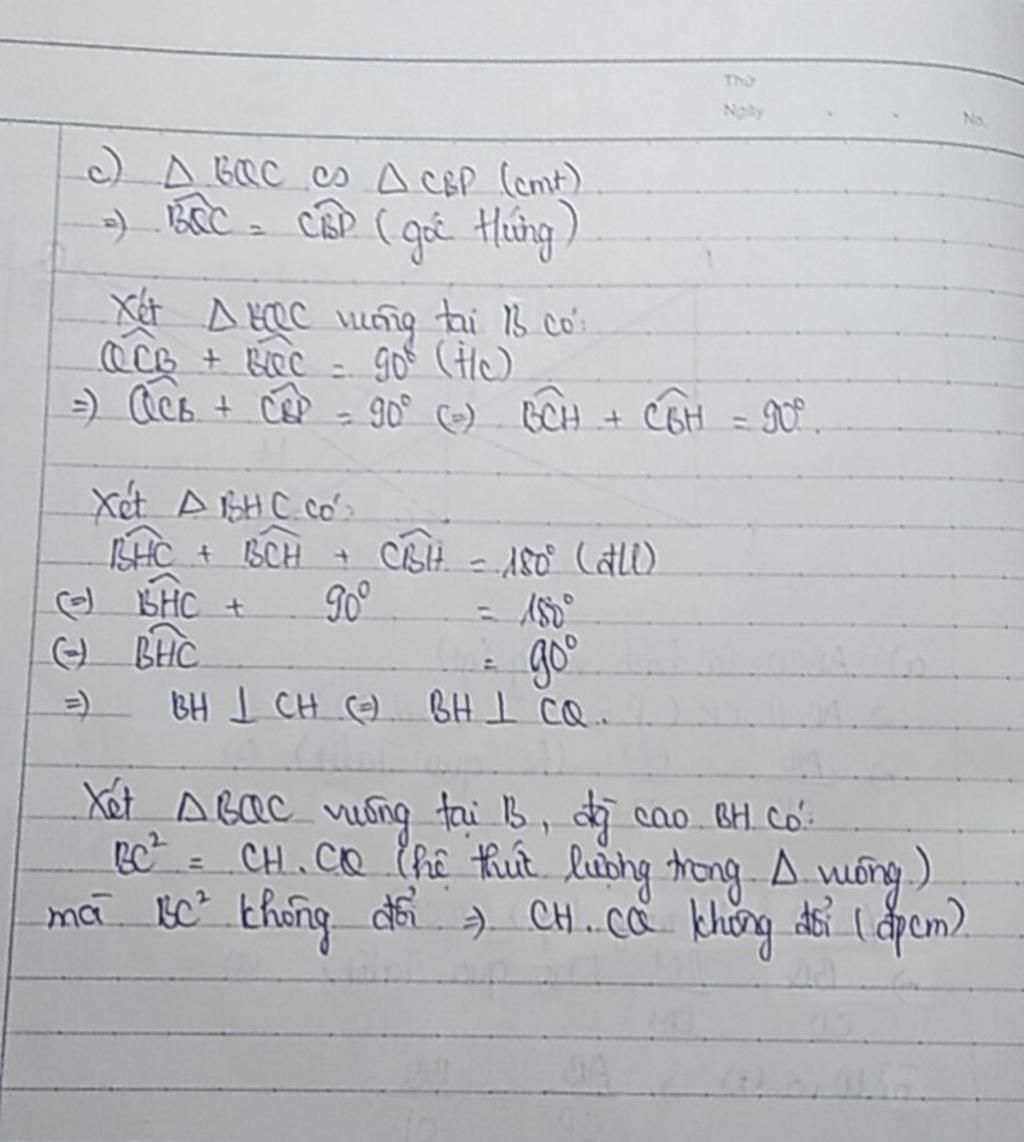 Thứ
Ngày
No.
c) Δ BQC ∽ Δ CBP (cmt)
=) B̂QC = ĈBP (góc tứng)
Xét Δ BQC vuông tại B có:
Q̂CB + B̂QC = 90° (t/c)
=) Q̂CB + ĈBP = 90° (=) B̂CH + ĈBH = 90°.
Xét Δ BHC có:
B̂HC + B̂CH + ĈBH = 180° (đll)
(=) B̂HC + 90° = 180°
(=) B̂HC = 90°
=) BH ⊥ CH (=) BH ⊥ CQ.
Xét Δ BQC vuông tại B, đg cao BH có:
BC² = CH.CQ (hệ thức lượng trong Δ vuông)
mà BC² không đổi => CH.CQ không đổi (đpcm)